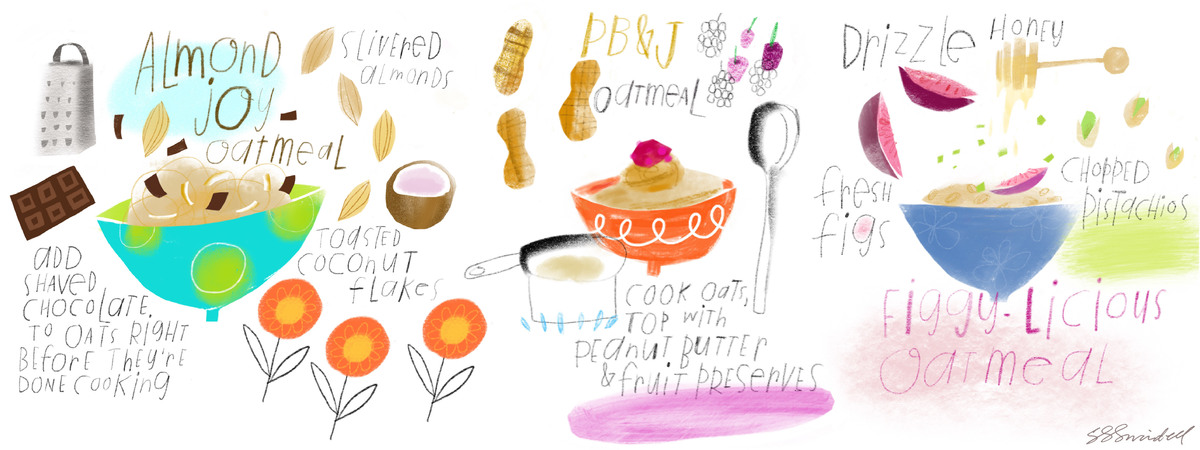 Almond
Joy
Oatmeal
Slivered
almonds
Toasted
coconut
flakes
Add
shaved
chocolate,
to oats right
before they're
done cooking
PB&J
Oatmeal
Cook oats,
top with
peanut butter
& fruit preserves
Drizzle Honey
Fresh
figs
Chopped
Pistachios
Figgy-Licious
Oatmeal